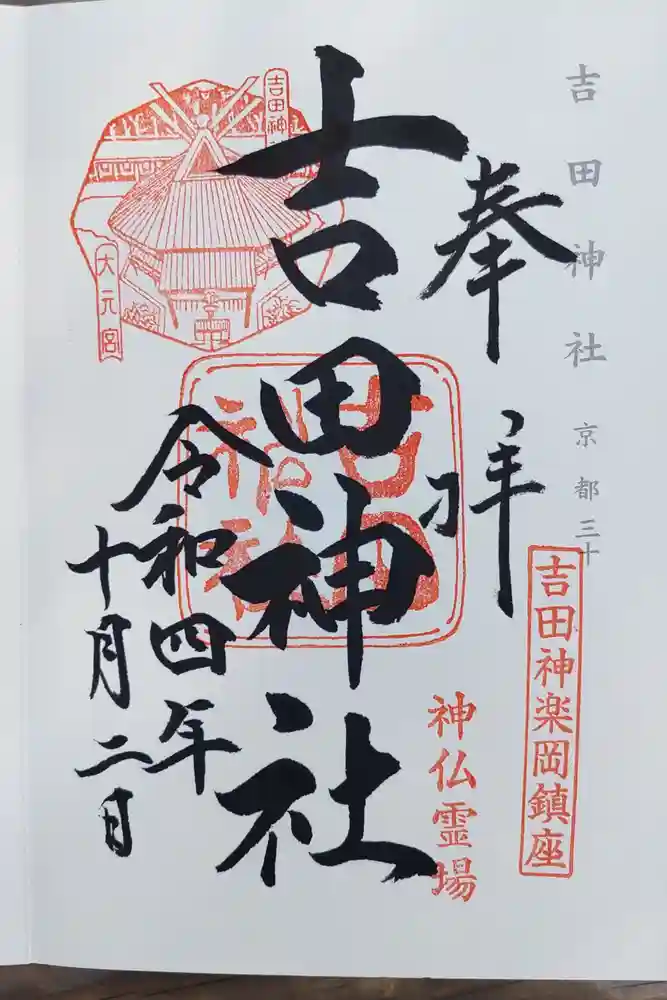 吉田神社 京都三十
吉田神楽岡鎮座
奉拝
神仏霊場
吉田神社
吉田神社
令和四年
十月二日
吉田神
大元宮